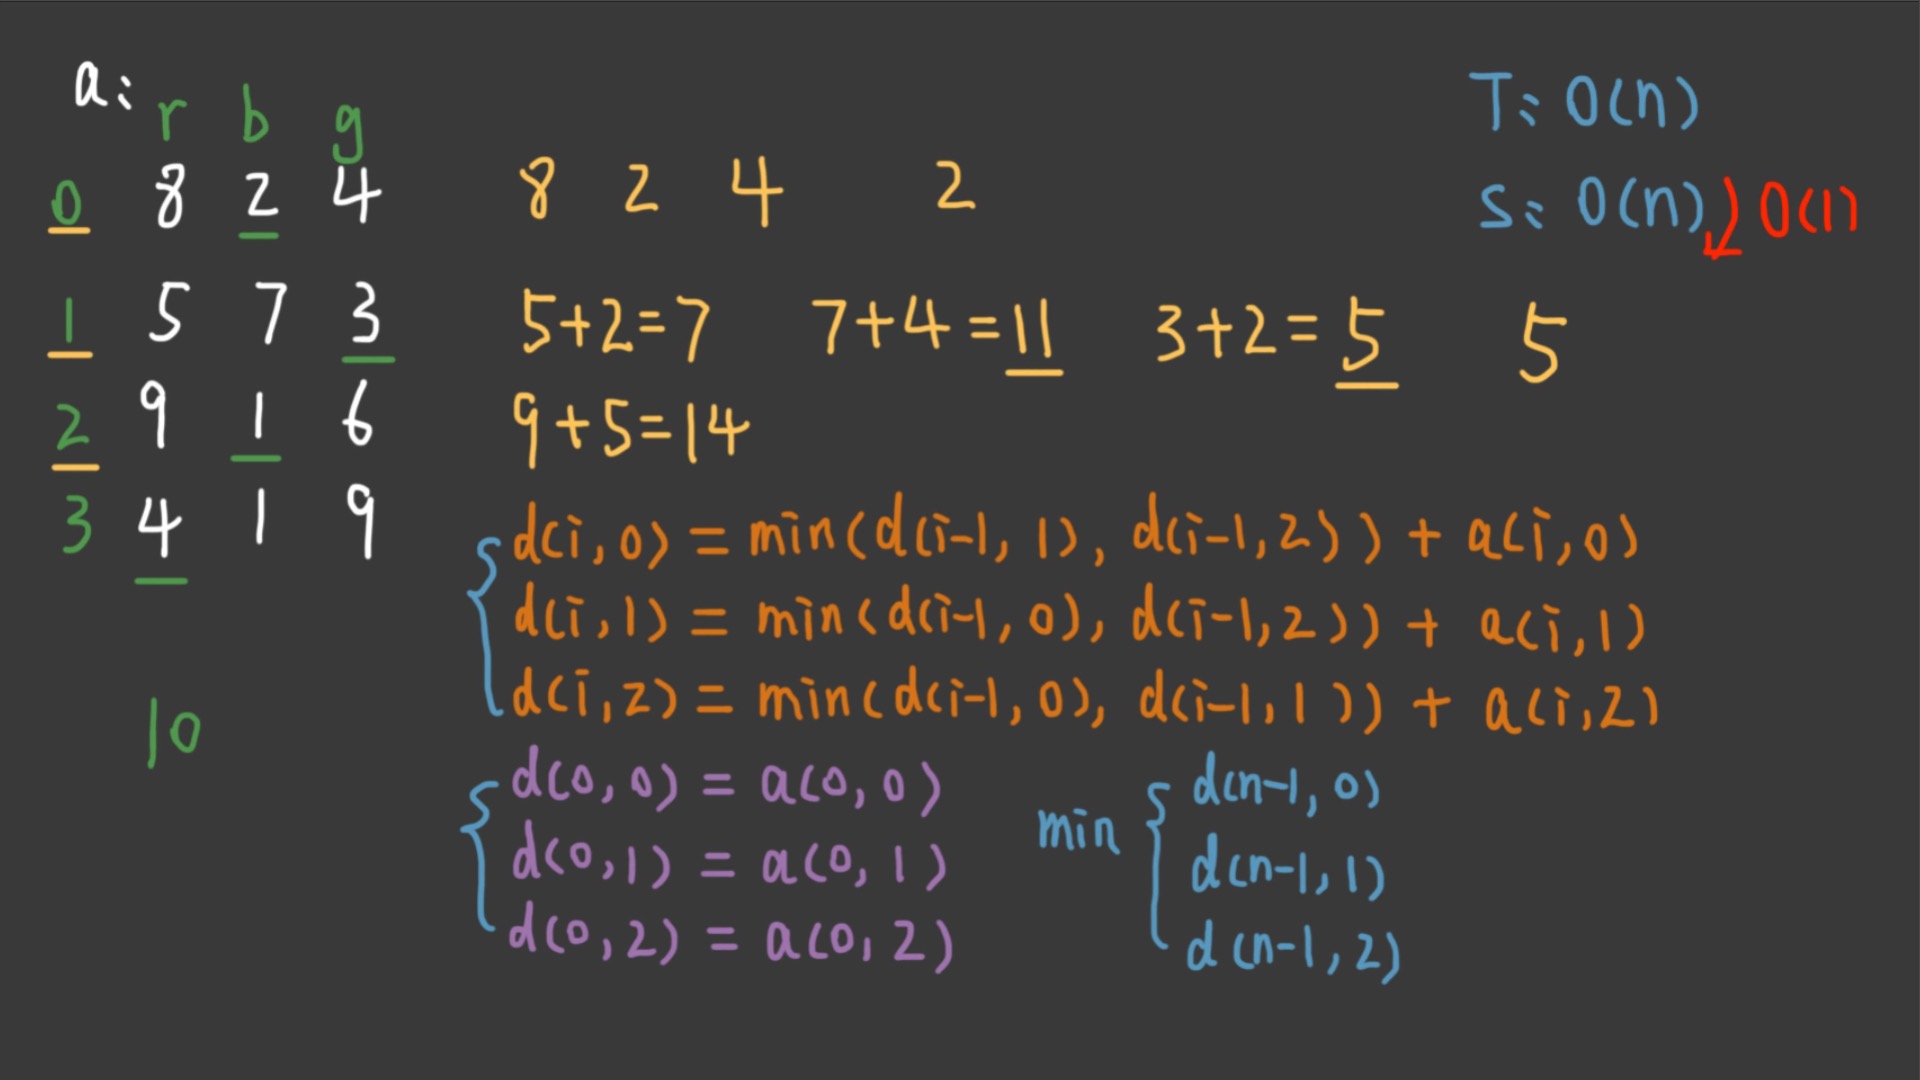 a:
r b g
0 8 2 4 8 2 4 2
1 5 7 3 5+2=7 7+4=11 3+2=5 5
2 9 1 6 9+5=14
3 4 1 9
10
d(i,0) = min(d(i-1,1), d(i-1,2)) + a(i,0)
d(i,1) = min(d(i-1,0), d(i-1,2)) + a(i,1)
d(i,2) = min(d(i-1,0), d(i-1,1)) + a(i,2)
d(0,0) = a(0,0)
d(0,1) = a(0,1)
d(0,2) = a(0,2)
min { d(n-1,0)
d(n-1,1)
d(n-1,2)
T: O(n)
S: O(n) O(1)